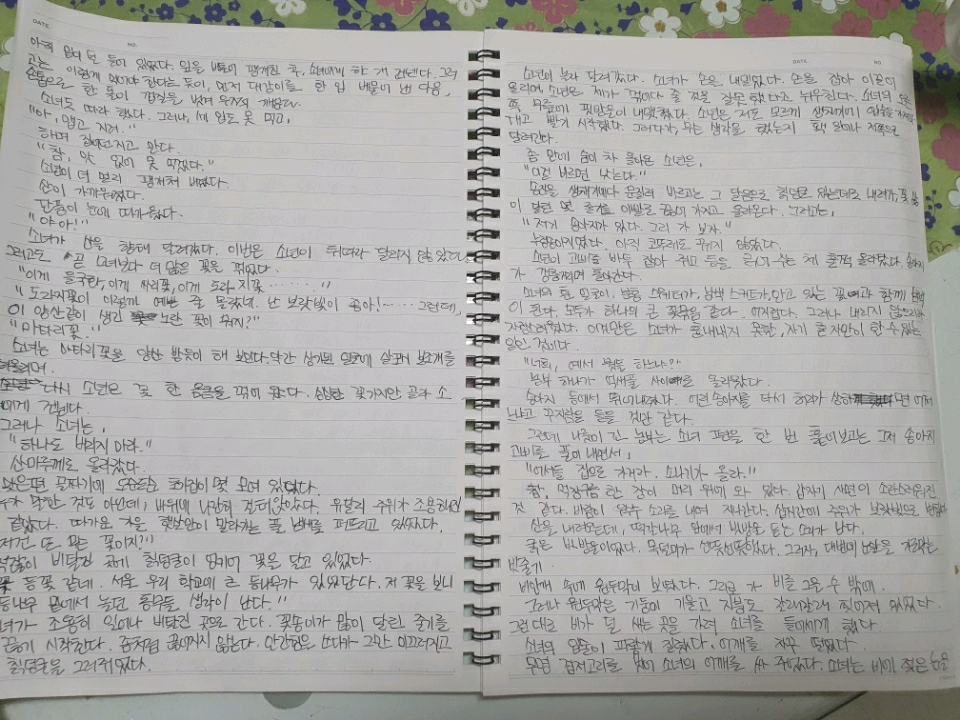 DATE
NO.
아직 밑이 덜 들어 있었다. 잎을 비틀어 팽개친 후, 소녀에게 한 개 건넨다. 그리
고는 이렇게 먹어야 한다는 듯이, 먼저 대강이를 한 입 베물어 낸 다음,
손톱으로 한 돌이 껍질을 벗겨 우적 깨문다.
소녀도 따라 했다. 그러나, 세 입도 못 먹고,
"아, 맵고 지려."
하며 집어던지고 만다.
"참, 맛 없어 못 먹겠다."
소년이 더 멀리 팽개쳐 버렸다.
산이 가까워졌다.
단풍이 눈에 따가웠다.
"야아!"
소녀가 산을 향해 달려갔다. 이번은 소년이 뒤따라 달리지 않았다.
그러고도 곧 소녀보다 더 많은 꽃을 꺾었다.
"이게 들국화, 이게 싸리꽃, 이게 도라지꽃………"
"도라지꽃이 이렇게 예쁜 줄 몰랐네. 난 보랏빛이 좋아!…… 그런데,
이 양산같이 생긴 노란 꽃이 뭐지?"
"마타리꽃."
소녀는 마타리꽃을 양산 받듯이 해 보인다. 약간 상기된 얼굴에 살포시 보조개를
떠올리며.
다시 소년은 꽃 한 옴큼을 꺾어 왔다. 싱싱한 꽃가지만 골라 소
녀에게 건넨다.
그러나 소녀는,
"하나도 버리지 마라."
산마루께로 올라갔다.
맞은편 골짜기에 오순도순 초가집이 몇 모여 있었다.
누가 말한 것도 아닌데, 바위에 나란히 걸터앉았다. 유달리 주위가 조용해진
것 같았다. 따가운 가을 햇살만이 말라가는 풀 냄새를 퍼뜨리고 있었다.
"저건 또 무슨 꽃이지?"
적잖이 비탈진 곳에 칡덩굴이 엉키어 꽃을 달고 있었다.
꼭 등꽃 같네. 서울 우리 학교에 큰 등나무가 있었단다. 저 꽃을 보니
등나무 밑에서 놀던 동무들 생각이 난다."
소녀가 조용히 일어나 비탈진 곳으로 간다. 꽃송이가 많이 달린 줄기를
끊기 시작한다. 좀처럼 끊어지지 않는다. 안간힘을 쓰다가 그만 미끄러지고
칡덩굴을 그러쥐었다.
DATE
NO
소년이 놀라 달려갔다. 소녀가 손을 내밀었다. 손을 잡아 이끌어
올리며, 소년은 제가 꺾어다 줄 것을 잘못했다고 뉘우친다. 소녀의 오른
쪽 무릎에 핏방울이 내맺혔다. 소년은 저도 모르게 생채기에 입술을 가져다
대고 빨기 시작했다. 그러다가, 무슨 생각을 했는지 홱 일어나 저쪽으로
달려간다.
좀 만에 숨이 차 돌아온 소년은,
"이걸 바르면 낫는다."
송진을 생채기에다 문질러 바르고는 그 달음으로 칡덩굴 있는데로 내려가, 꽃 많
이 달린 몇 줄기를 이빨로 끊어 가지고 올라온다. 그리고는,
"저기 송아지가 있다. 그리 가 보자."
누렁송아지였다. 아직 코뚜레도 꿰지 않았다.
소년이 고삐를 바투 잡아 쥐고 등을 긁어 주는 체 훌쩍 올라탔다. 송아지
가 껑충거리며 돌아간다.
소녀의 흰 얼굴이, 분홍 스웨터가, 남색 스커트가, 안고 있는 꽃과 함께 범벅
이 된다. 모두가 하나의 큰 꽃묶음 같다. 어지럽다. 그러나 내리지 않으리라.
자랑스러웠다. 이것만은 소녀가 흉내내지 못할, 자기 혼자만이 할 수 있는
일인 것이다.
"너희, 예서 뭣들 하느냐?"
농부 하나가 억새풀 사이로 올라왔다.
송아지 등에서 뛰어내렸다. 어린 송아지를 타서 허리가 상하면 어쩌
느냐고 꾸지람을 들을 것만 같다.
그런데 나룻이 긴 농부는 소녀 편을 한 번 훑어보고는 그저 송아지
고삐를 풀어 내면서,
"어서들 집으로 가거라. 소나기가 올라."
참, 먹장구름 한 장이 머리 위에 와 있다. 갑자기 사면이 소란스러워진
것 같다. 바람이 우수수 소리를 내며 지나간다. 삽시간에 주위가 보랏빛으로 변했다.
산을 내려오는데, 떡갈나무 잎에서 빗방울 듣는 소리가 난다.
굵은 빗방울이었다. 목덜미가 선뜻선뜻했다. 그러자, 대번에 눈앞을 가로막는
빗줄기
비안개 속에 원두막이 보였다. 그리로 가 비를 그을 수 밖에.
그러나 원두막은 기둥이 기울고 지붕도 갈래갈래 찢어져 있었다.
그런대로 비가 덜 새는 곳을 가려 소녀를 들어서게 했다.
소녀의 입술이 파랗게 질렸다. 어깨를 자꾸 떨었다.
무명 겹저고리를 벗어 소녀의 어깨를 싸 주었다. 소녀는 비에 젖은 눈을